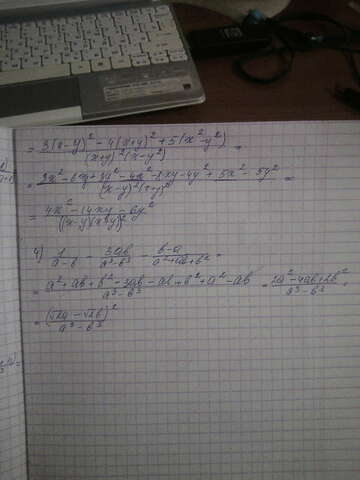 = 3(x-y)² - 4(x+y)² + 5(x²-y²) / (x+y)²(x-y²) =
= 3x² - 6xy + 3y² - 4x² - 8xy - 4y² + 5x² - 5y² / (x-y)²(x+y)² =
= 4x² - 14xy - 6y² / ((x-y)(x+y))²
4) 1/(a-b) - 3ab/(a³-b³) - (b-a)/(a²+ab+b²) =
= a² + ab + b² - 3ab - ab + b² + a² - ab / a³-b³ = 2a² - 4ab + 2b² / a³-b³ =
= (√2a - √2b)² / a³-b³